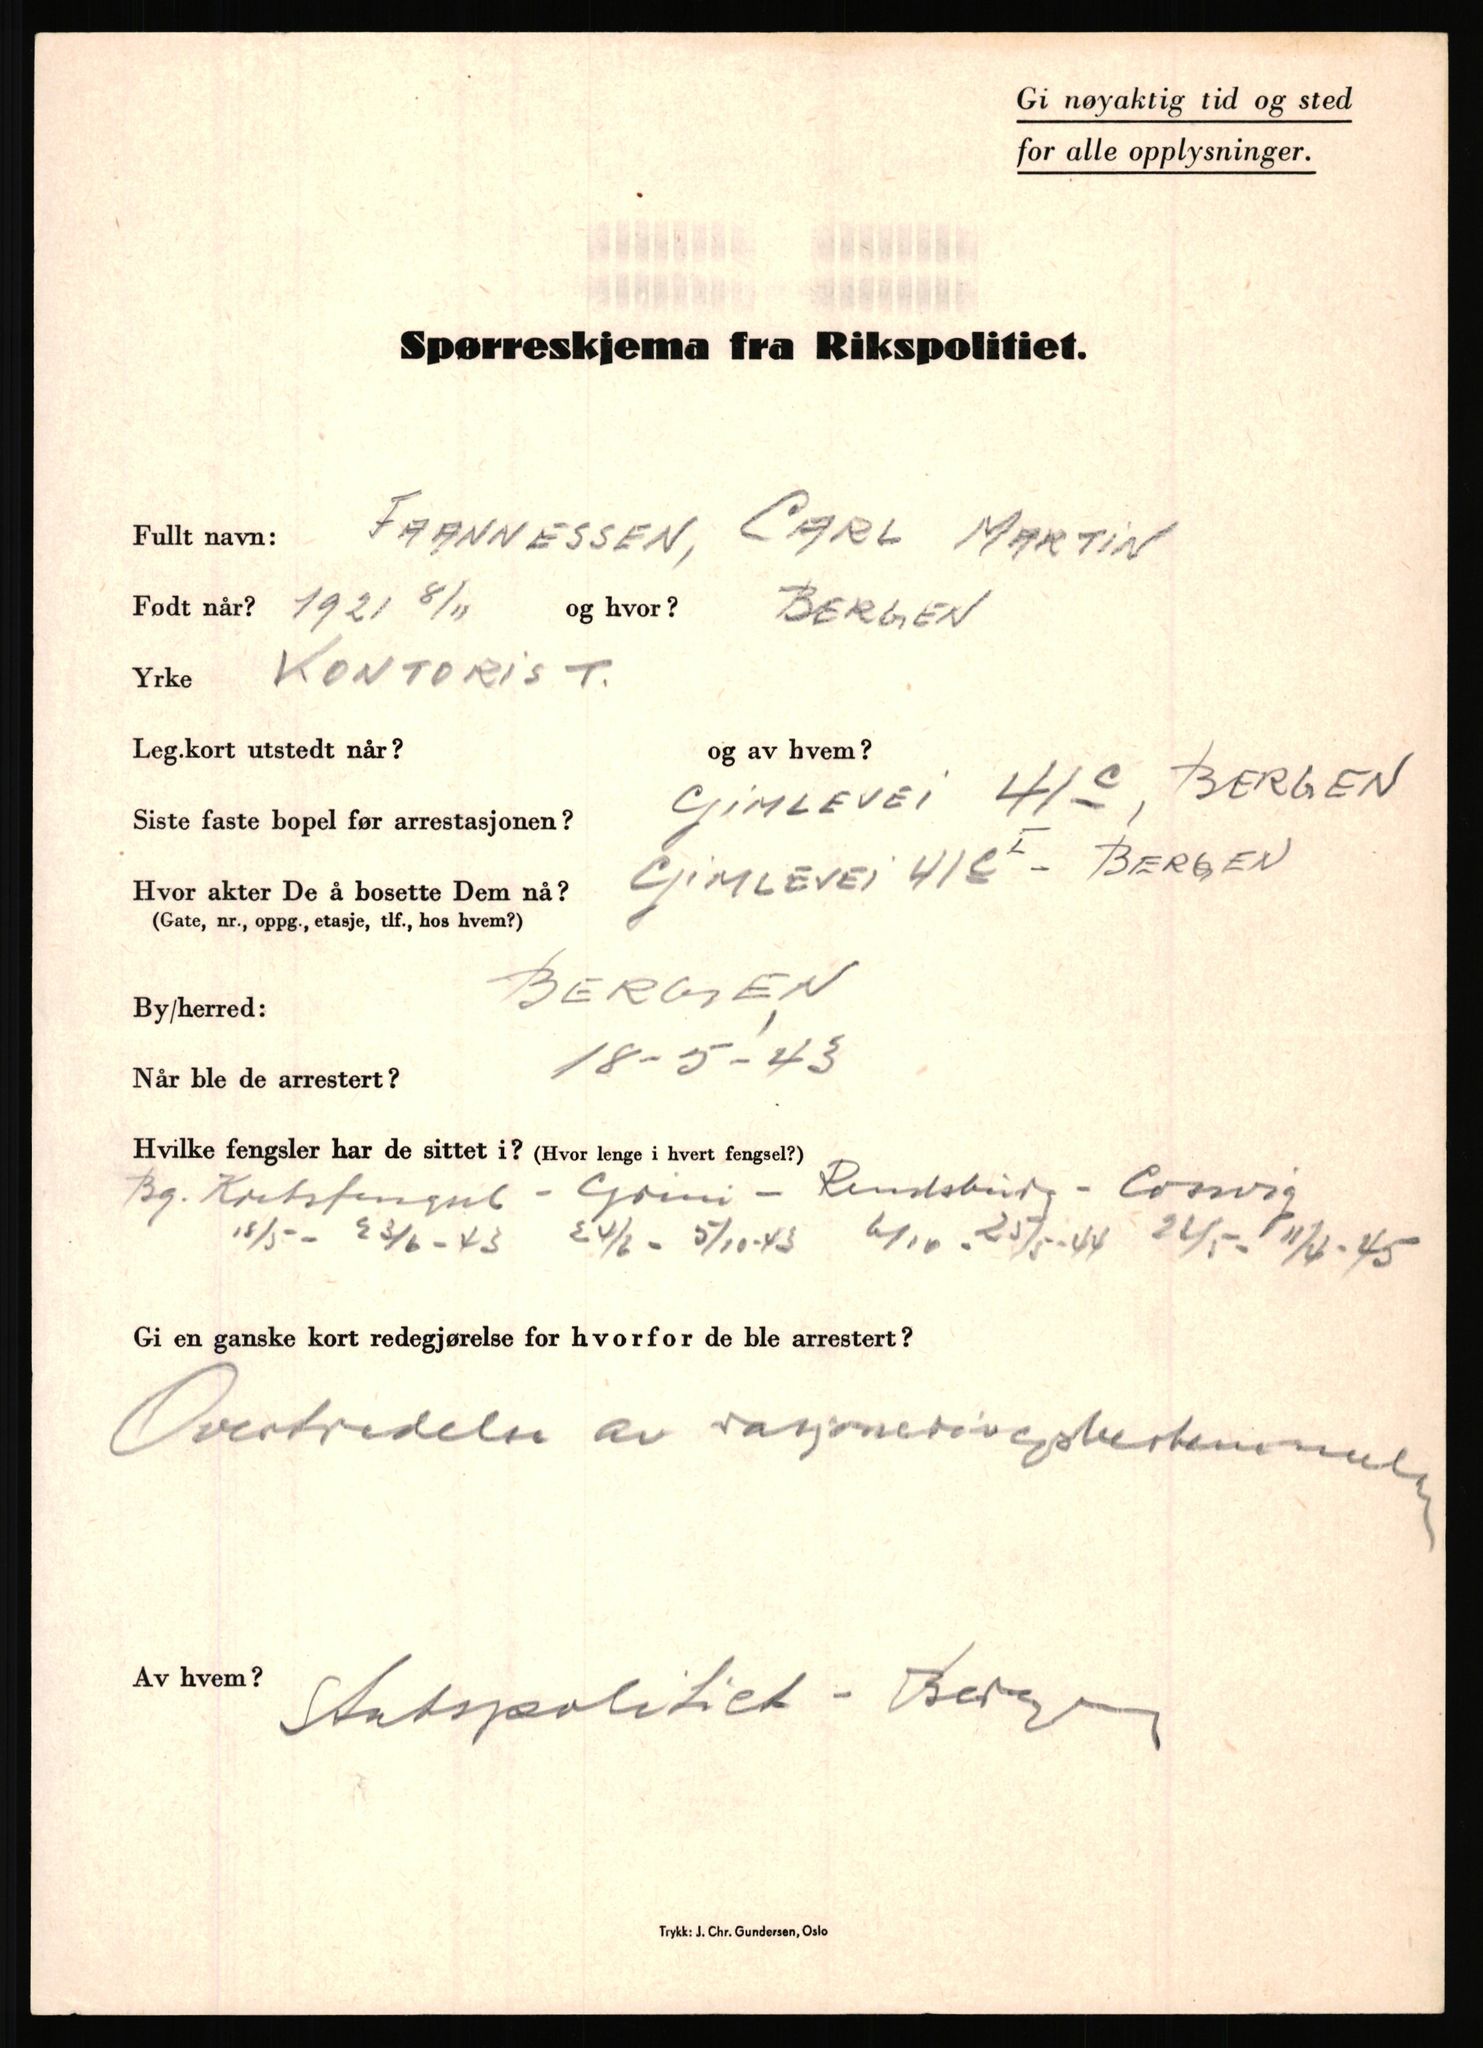 Gi nøyaktig tid og sted
for alle opplysninger.
Spørreskjema fra Rikspolitiet.
Fullt navn: FAANNESSEN, CARL MARTIN
Født når? 1921 8/11 og hvor? BERGEN
Yrke KONTORIST.
Leg.kort utstedt når? og av hvem?
Siste faste bopel før arrestasjonen? GIMLEVEI 41C, BERGEN
Hvor akter De å bosette Dem nå? GIMLEVEI 41C I - BERGEN
(Gate, nr., oppg., etasje, tlf., hos hvem?)
By/herred: BERGEN
Når ble de arrestert? 18-5-43
Hvilke fengsler har de sittet i? (Hvor lenge i hvert fengsel?)
Bg. Kretsfengsel - Grini - Rendsburg - Coswig
18/5 - 23/6-43 24/6 - 5/10-43 6/10 - 25/5-44 26/5 - 11/4-45
Gi en ganske kort redegjørelse for hvorfor de ble arrestert?
Overtredelse av rasjoneringsbestemmelser
Av hvem? Statspolitiet - Bergen
Trykk: J. Chr. Gundersen, Oslo